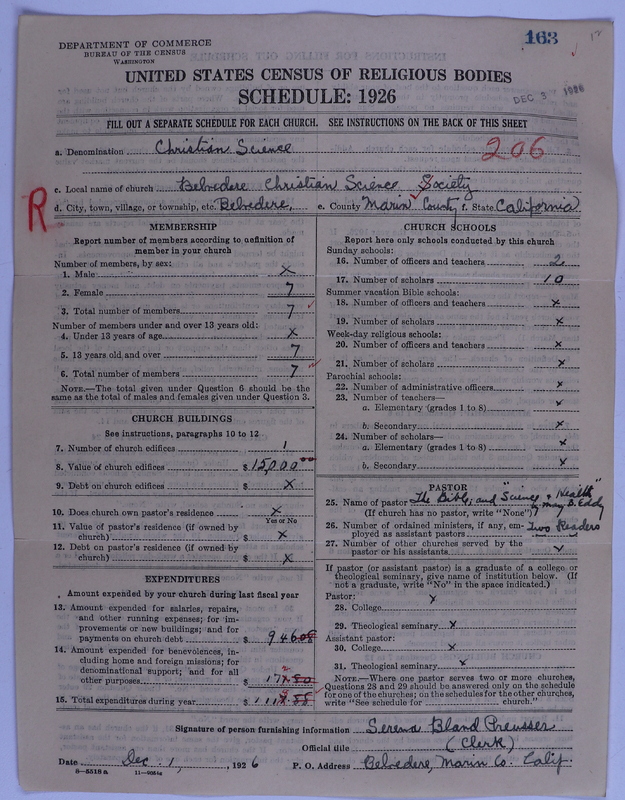 163
DEPARTMENT OF COMMERCE
BUREAU OF THE CENSUS
WASHINGTON
UNITED STATES CENSUS OF RELIGIOUS BODIES
SCHEDULE: 1926
DEC 3 1926
FILL OUT A SEPARATE SCHEDULE FOR EACH CHURCH. SEE INSTRUCTIONS ON THE BACK OF THIS SHEET
a. Denomination Christian Science
206
c. Local name of church Belvedere Christian Science Society
R
d. City, town, village, or township, etc. Belvedere, e. County Marin County f. State California
MEMBERSHIP
Report number of members according to definition of
member in your church
Number of members, by sex:
1. Male x
2. Female 7
3. Total number of members 7
Number of members under and over 13 years old:
4. Under 13 years of age x
5. 13 years old and over 7
6. Total number of members 7
NOTE.—The total given under Question 6 should be the
same as the total of males and females given under Question 3.
CHURCH BUILDINGS
See instructions, paragraphs 10 to 12
7. Number of church edifices 1
8. Value of church edifices $ 15,000 00
9. Debt on church edifices $ x
10. Does church own pastor's residence x
Yes or No
11. Value of pastor's residence (if owned by
church) $ x
12. Debt on pastor's residence (if owned by
church) $ x
EXPENDITURES
Amount expended by your church during last fiscal year
13. Amount expended for salaries, repairs,
and other running expenses; for im-
provements or new buildings; and for
payments on church debt $
14. Amount expended for benevolences, in-
cluding home and foreign missions; for
denominational support; and for all
other purposes $
15. Total expenditures during year $
CHURCH SCHOOLS
Report here only schools conducted by this church
Sunday schools:
16. Number of officers and teachers 2
17. Number of scholars 10
Summer vacation Bible schools:
18. Number of officers and teachers x
19. Number of scholars x
Week-day religious schools:
20. Number of officers and teachers x
21. Number of scholars x
Parochial schools:
22. Number of administrative officers x
23. Number of teachers—
a. Elementary (grades 1 to 8) x
b. Secondary x
24. Number of scholars—
a. Elementary (grades 1 to 8) x
b. Secondary x
PASTOR
25. Name of pastor The Bible, and "Science & Health"
(If church has no pastor, write "None") by Mary B. Eddy
26. Number of ordained ministers, if any, em-
ployed as assistant pastors Two Readers
27. Number of other churches served by the
pastor or his assistants x
If pastor (or assistant pastor) is a graduate of a college or
theological seminary, give name of institution below. (If
not a graduate, write "No" in the space indicated.)
Pastor:
28. College x
29. Theological seminary x
Assistant pastor:
30. College x
31. Theological seminary x
NOTE.—Where one pastor serves two or more churches,
Questions 28 and 29 should be answered only on the schedule
for one of the churches; on the schedules for the other churches,
write "See schedule for church."
Signature of person furnishing information Serena Bland Preusser
Official title (Clerk)
Date Dec. 1, 1926 P. O. Address Belvedere, Marin Co. Calif.
8—5518 a 11—9054a